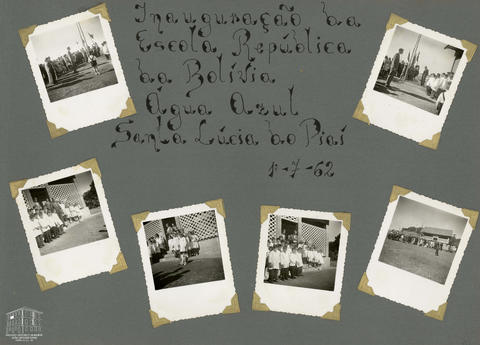 Inauguração da
Escola República
da Bolívia
Água Azul
Santa Lúcia do Piaí
1-7-62